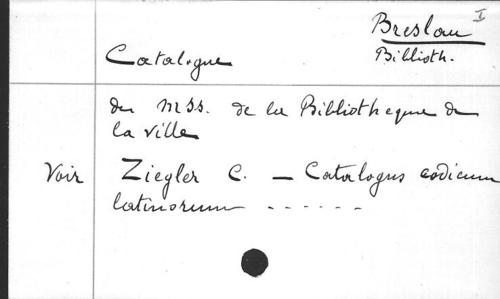 Breslau I
Biblioth.
Catalogue
des mss. de la Bibliotheque de
la ville
Voir Ziegler C. — Catalogus codicum
latinorum - - - - - -